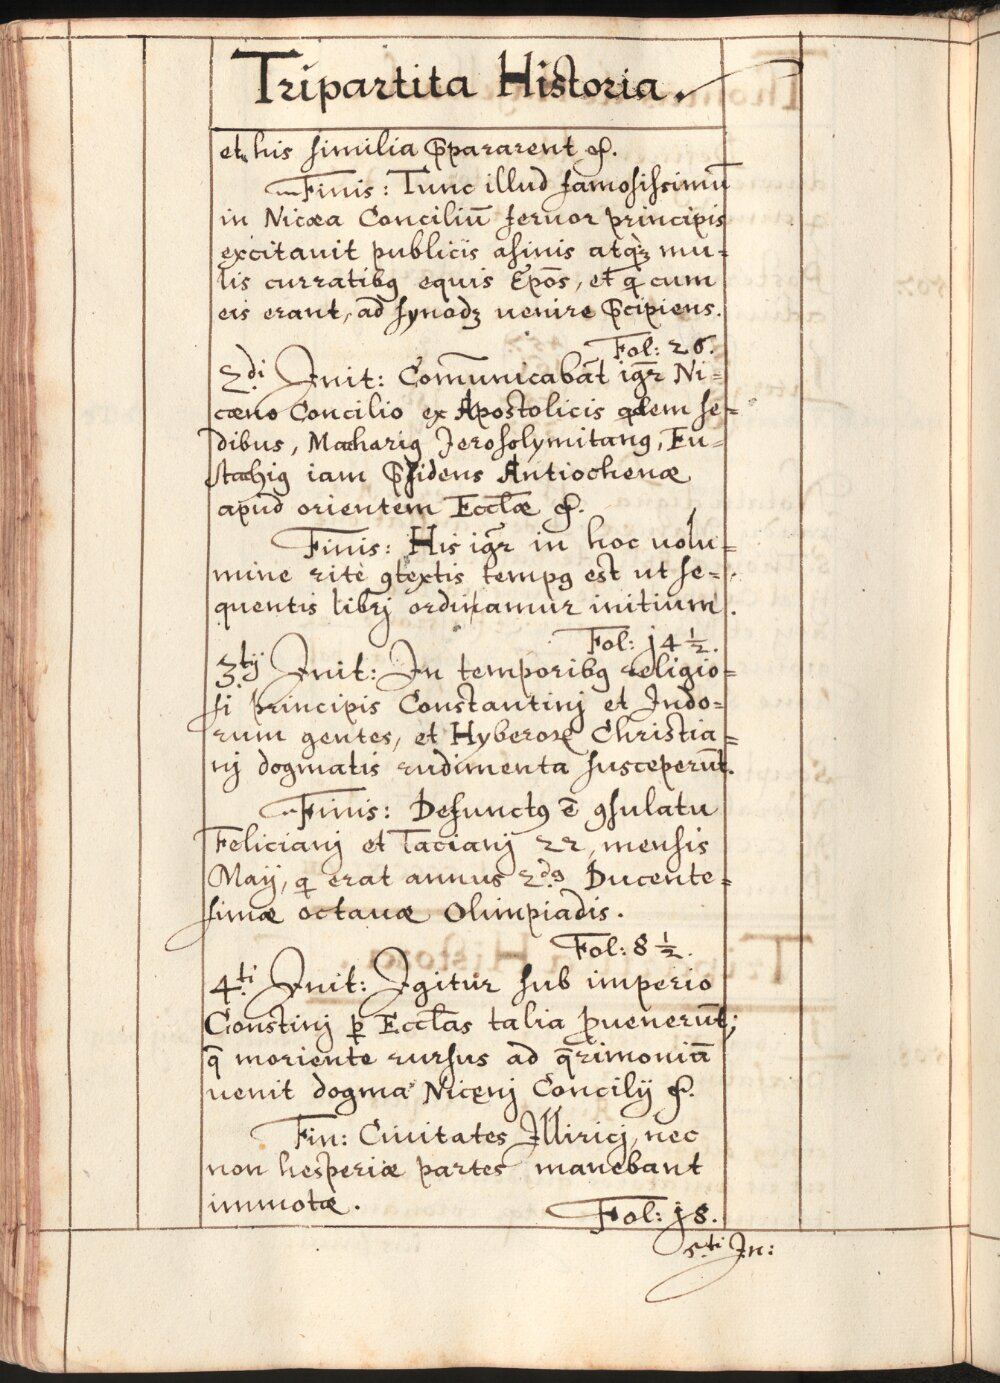 Tripartita Historia.
et his similia p̄pararent &.
Finis: Tunc illud famosissimū
in Nicæa Conciliū feruor principis
excitauit publicis asinis atq́ꝫ mu=
lis curratibꝰ equis Ep̄os, et q̄ cum
eis erant, ad synodꝫ uenire p̄cipiens.
Fol: 26.
2di Init: Com̄unicabāt igr̄ Ni=
cæno Concilio ex Apostolicis qdem se=
dibus, Machariꝰ Jerosolymitanꝰ, Eu=
stachiꝰ iam p̄sidens Antiochenæ
apud orientem Eccl̄æ &.
Finis: His igr̄ in hoc uolu=
mine ritè ꝯtextis tempꝰ est ut se=
quentis librj ordinamur initium.
Fol: j4 ½.
3tij Init: In temporibꝰ religio=
si principis Constantinj et Indo=
rum gentes, et Hyberoꝝ Christia=
nj dogmatis rudimenta susceperūt.
Finis: Defunctꝰ ē ꝯsulatu
Felicianj et Tacianj 22, mensis
Maÿ, q erat annus 2dꝰ Ducente=
simæ octauæ Olimpiadis.
Fol: 8 ½.
4ti Init: Igitur sub imperio
Constinj p̄ Eccl̄as talia ꝓuenerūt;
q̄ moriente rursus ad q̄rimoniā
uenit dogma Nicenj Concilÿ &.
Fin: Ciuitates Illiricj, nec
non hesperiæ partes manebant
immotæ.
Fol: j8.
5ti In: